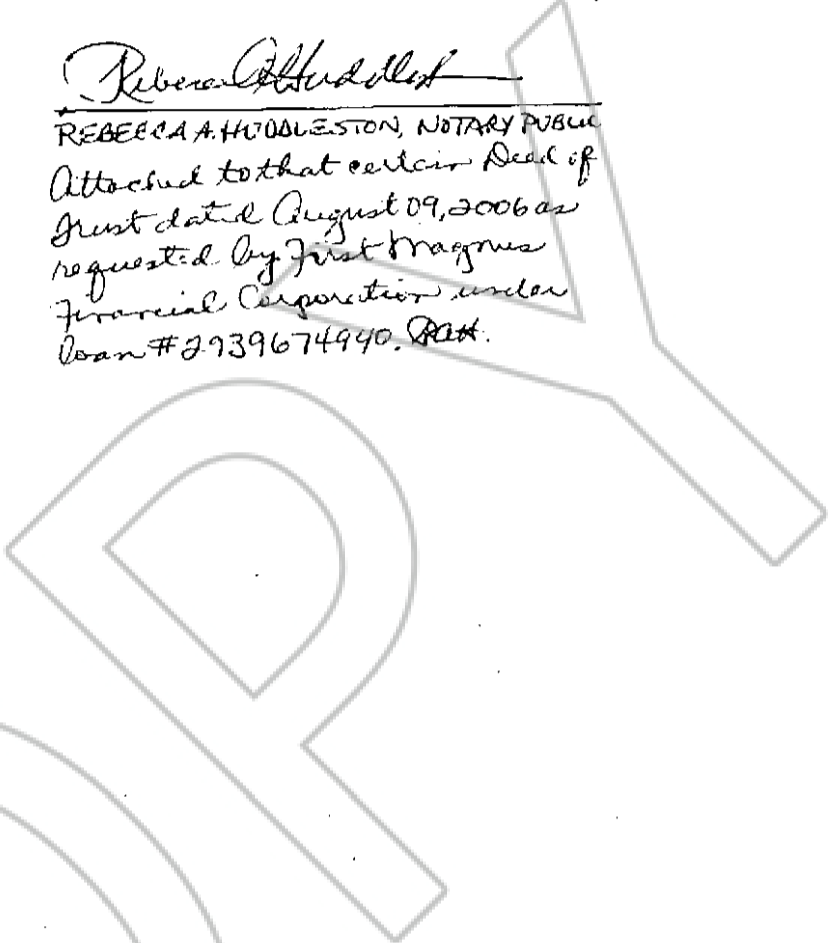 Rebecca A Huddleston
REBECCA A. HUDDLESTON, NOTARY PUBLIC
Attached to that certain Deed of
Trust dated August 09, 2006 as
requested by First Magnus
Financial Corporation under
loan # 2939674940. RAH.
OPY